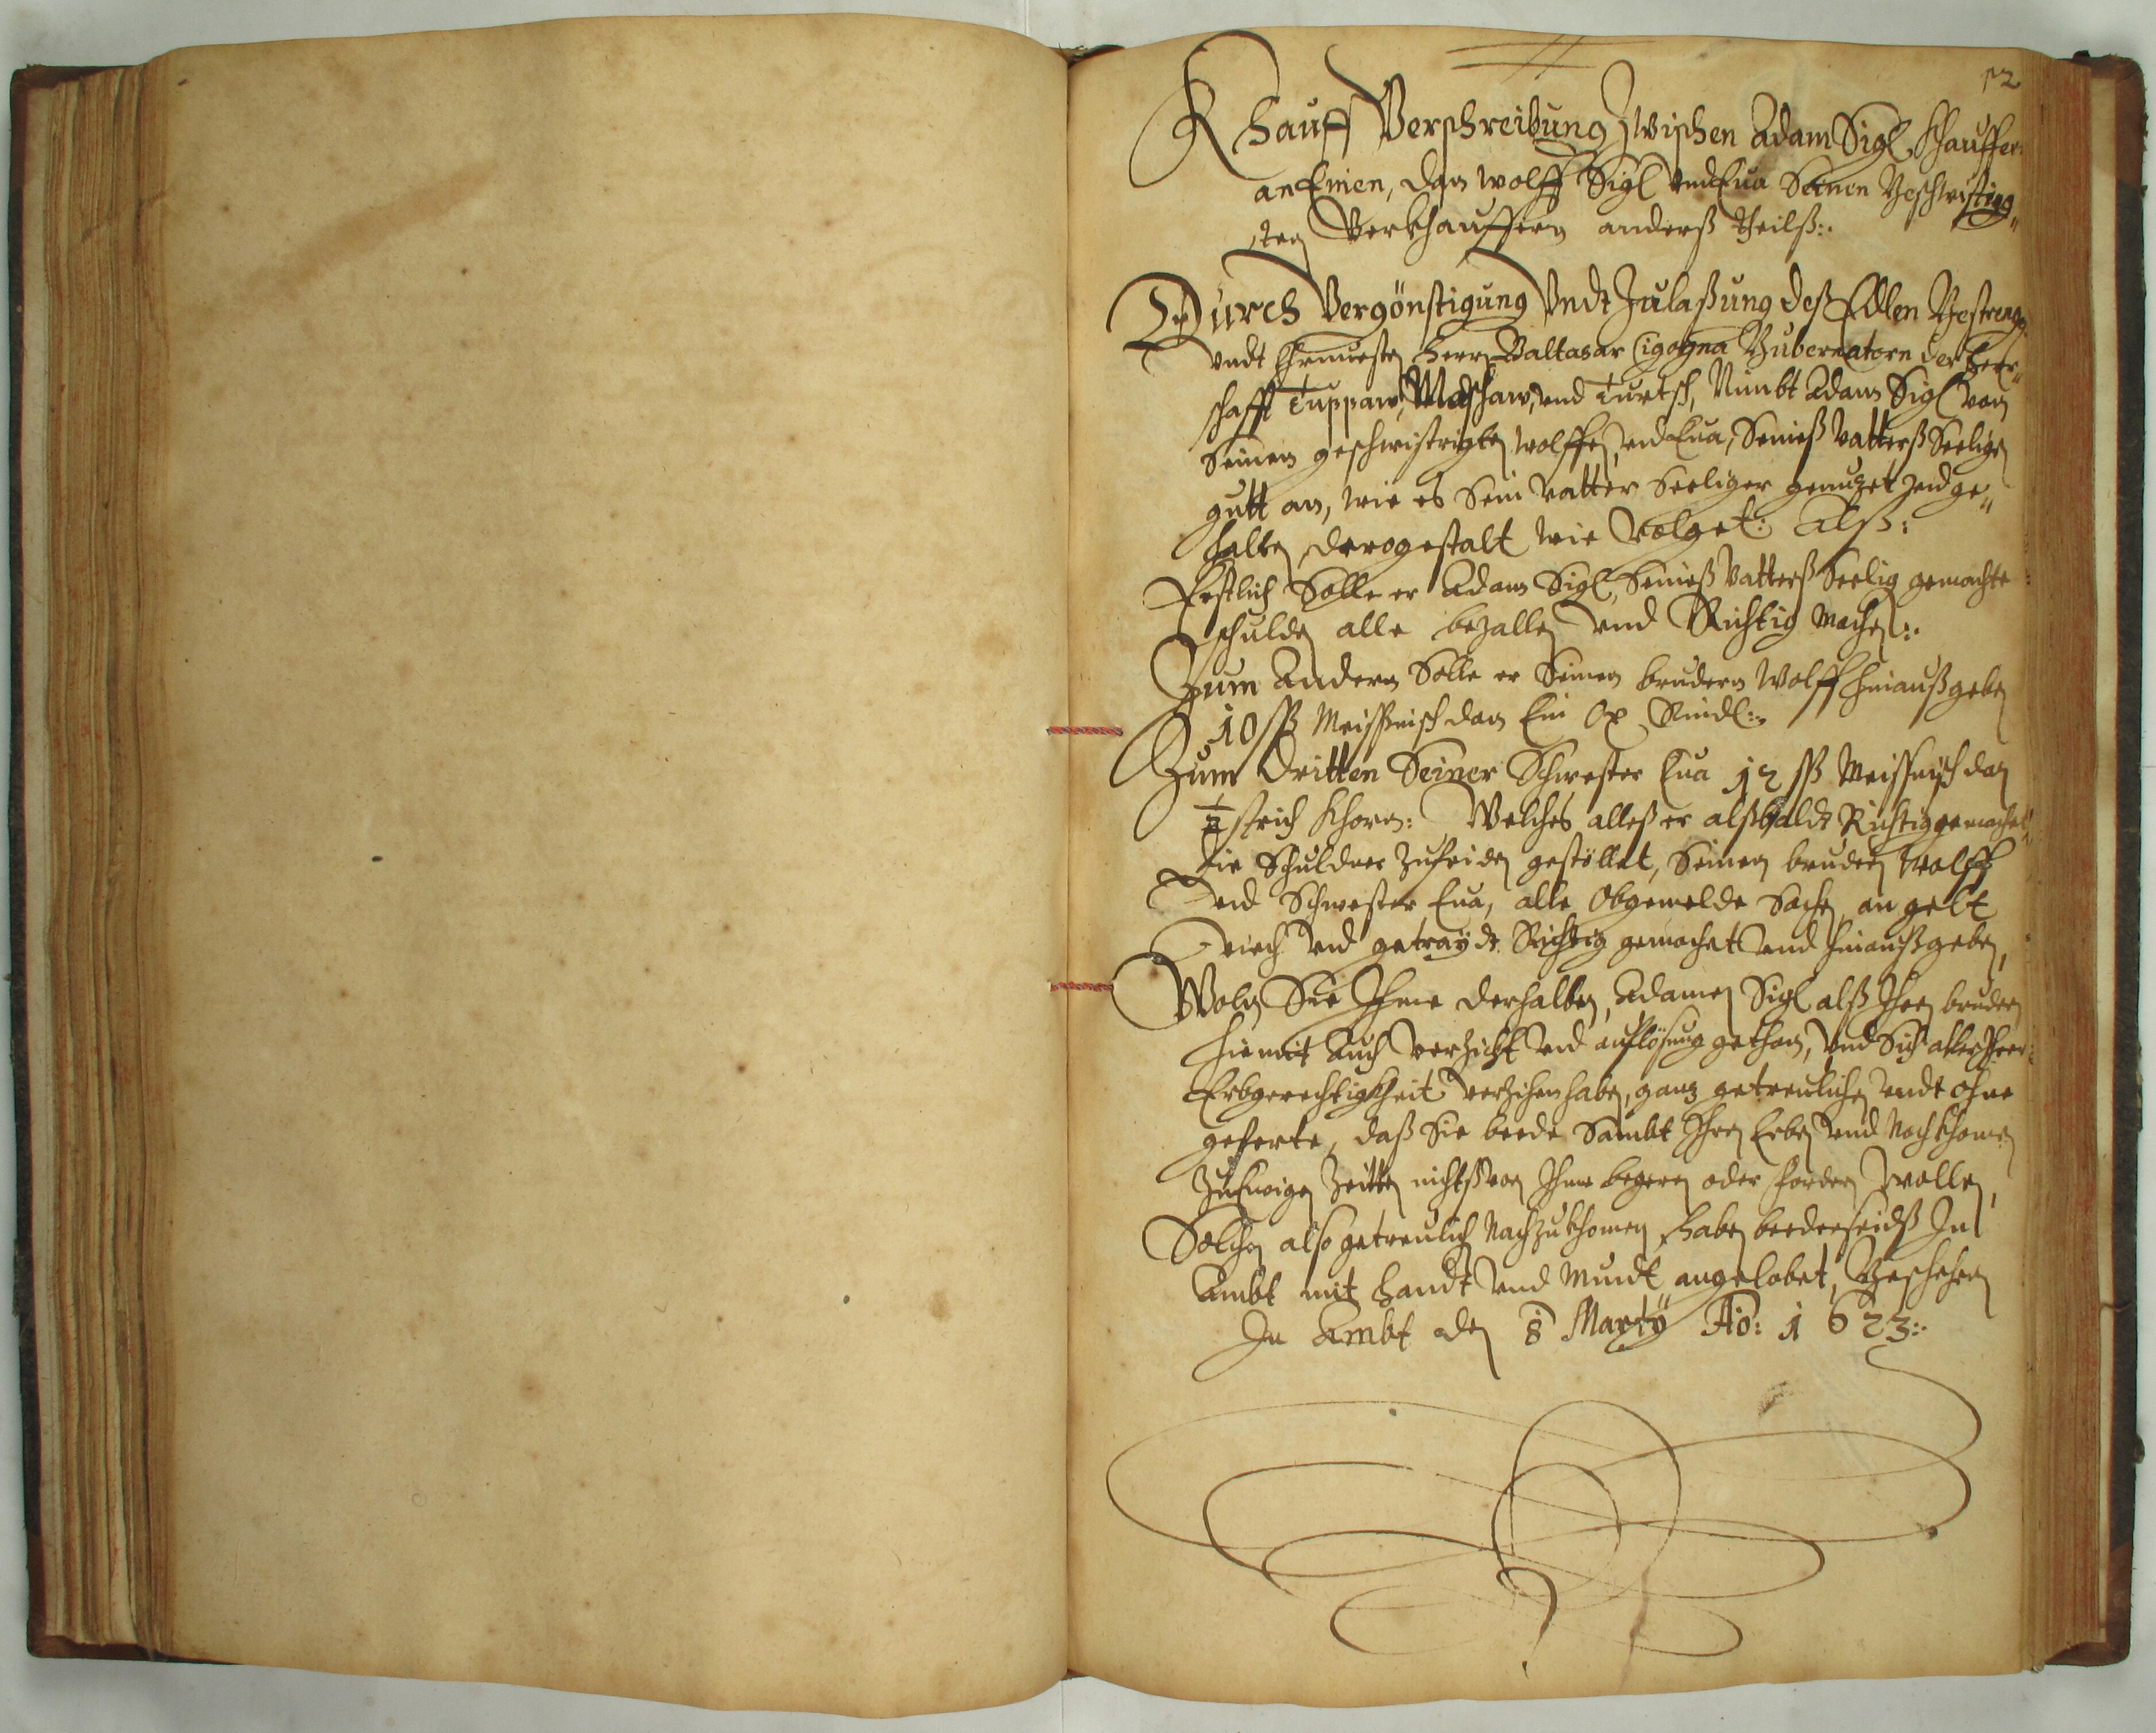 52
Khauff Verschreibung Zwischen Adam Sigl Khauffer
an Einen, dan Wolff Sigl vnd Eua Seinen Geschwistrig„
ten Verkhauffern anderß theilß:.
Durch Vergönstigung Vndt Zulaßung deß Edlen Gestrengen
vndt Ehrnuesten Herrn Baltasar Cigogna Gubernatorn der Herr„
schafft Tuppaw, Maschaw, vnd Turtsch, Nimbt Adam Sigl von
Seinen geschwistrigten Wolffen, vnd Eua, Seineß Vatterß Seeligen
gutt an, wie es Sein Vatter Seeliger genuzet vnd ge„
halten, derogestalt wie Volget: Alß:
Erstlich Solle er Adam Sigl, Seineß Vatterß Seelig gemachte
schulden alle bezallen vnd Richtig machen:.
Zum Andern Solle er Seinen brudern Wolff hinaußgeben
10 ßß Meißnisch dan Ein Ox Rindl:.
Zum Dritten Seiner Schwester Eua 12 ßß Meissnisch dan
½ strich Khorn: Welches alleß er alßbaldt Richtig gemachet„
die Schuldner Zufriden gestöllet, Seinen brudern Wolff
vnd Schwester Eua, alle Obgemelde Sachen, an gelt
viech vnd getraydt Richtig gemachet vnd hinaußgeben,
Wolen Sie Ihme derhalben, Adamen Sigl alß Ihren brudern
hiemit Auch verzicht vnd auflösung gethan, Vnd Sich aller Ihrer
Erbgerechtigkheit verzihen haben, ganz getreulichen vndt ohne
geferte, daß Sie beede Sambt Ihren Erben vnd Nachkhomen
Zu Ewigen Zeitten nichtß von Ihme begeren oder fordern wollen,
Solchen also getreulich Nachzukhomen, haben beederseidß In
Ambt mit Handt vnd Mundt angelobet, Geschehen
In Ambt den 8 Marty Ao: 1623:.